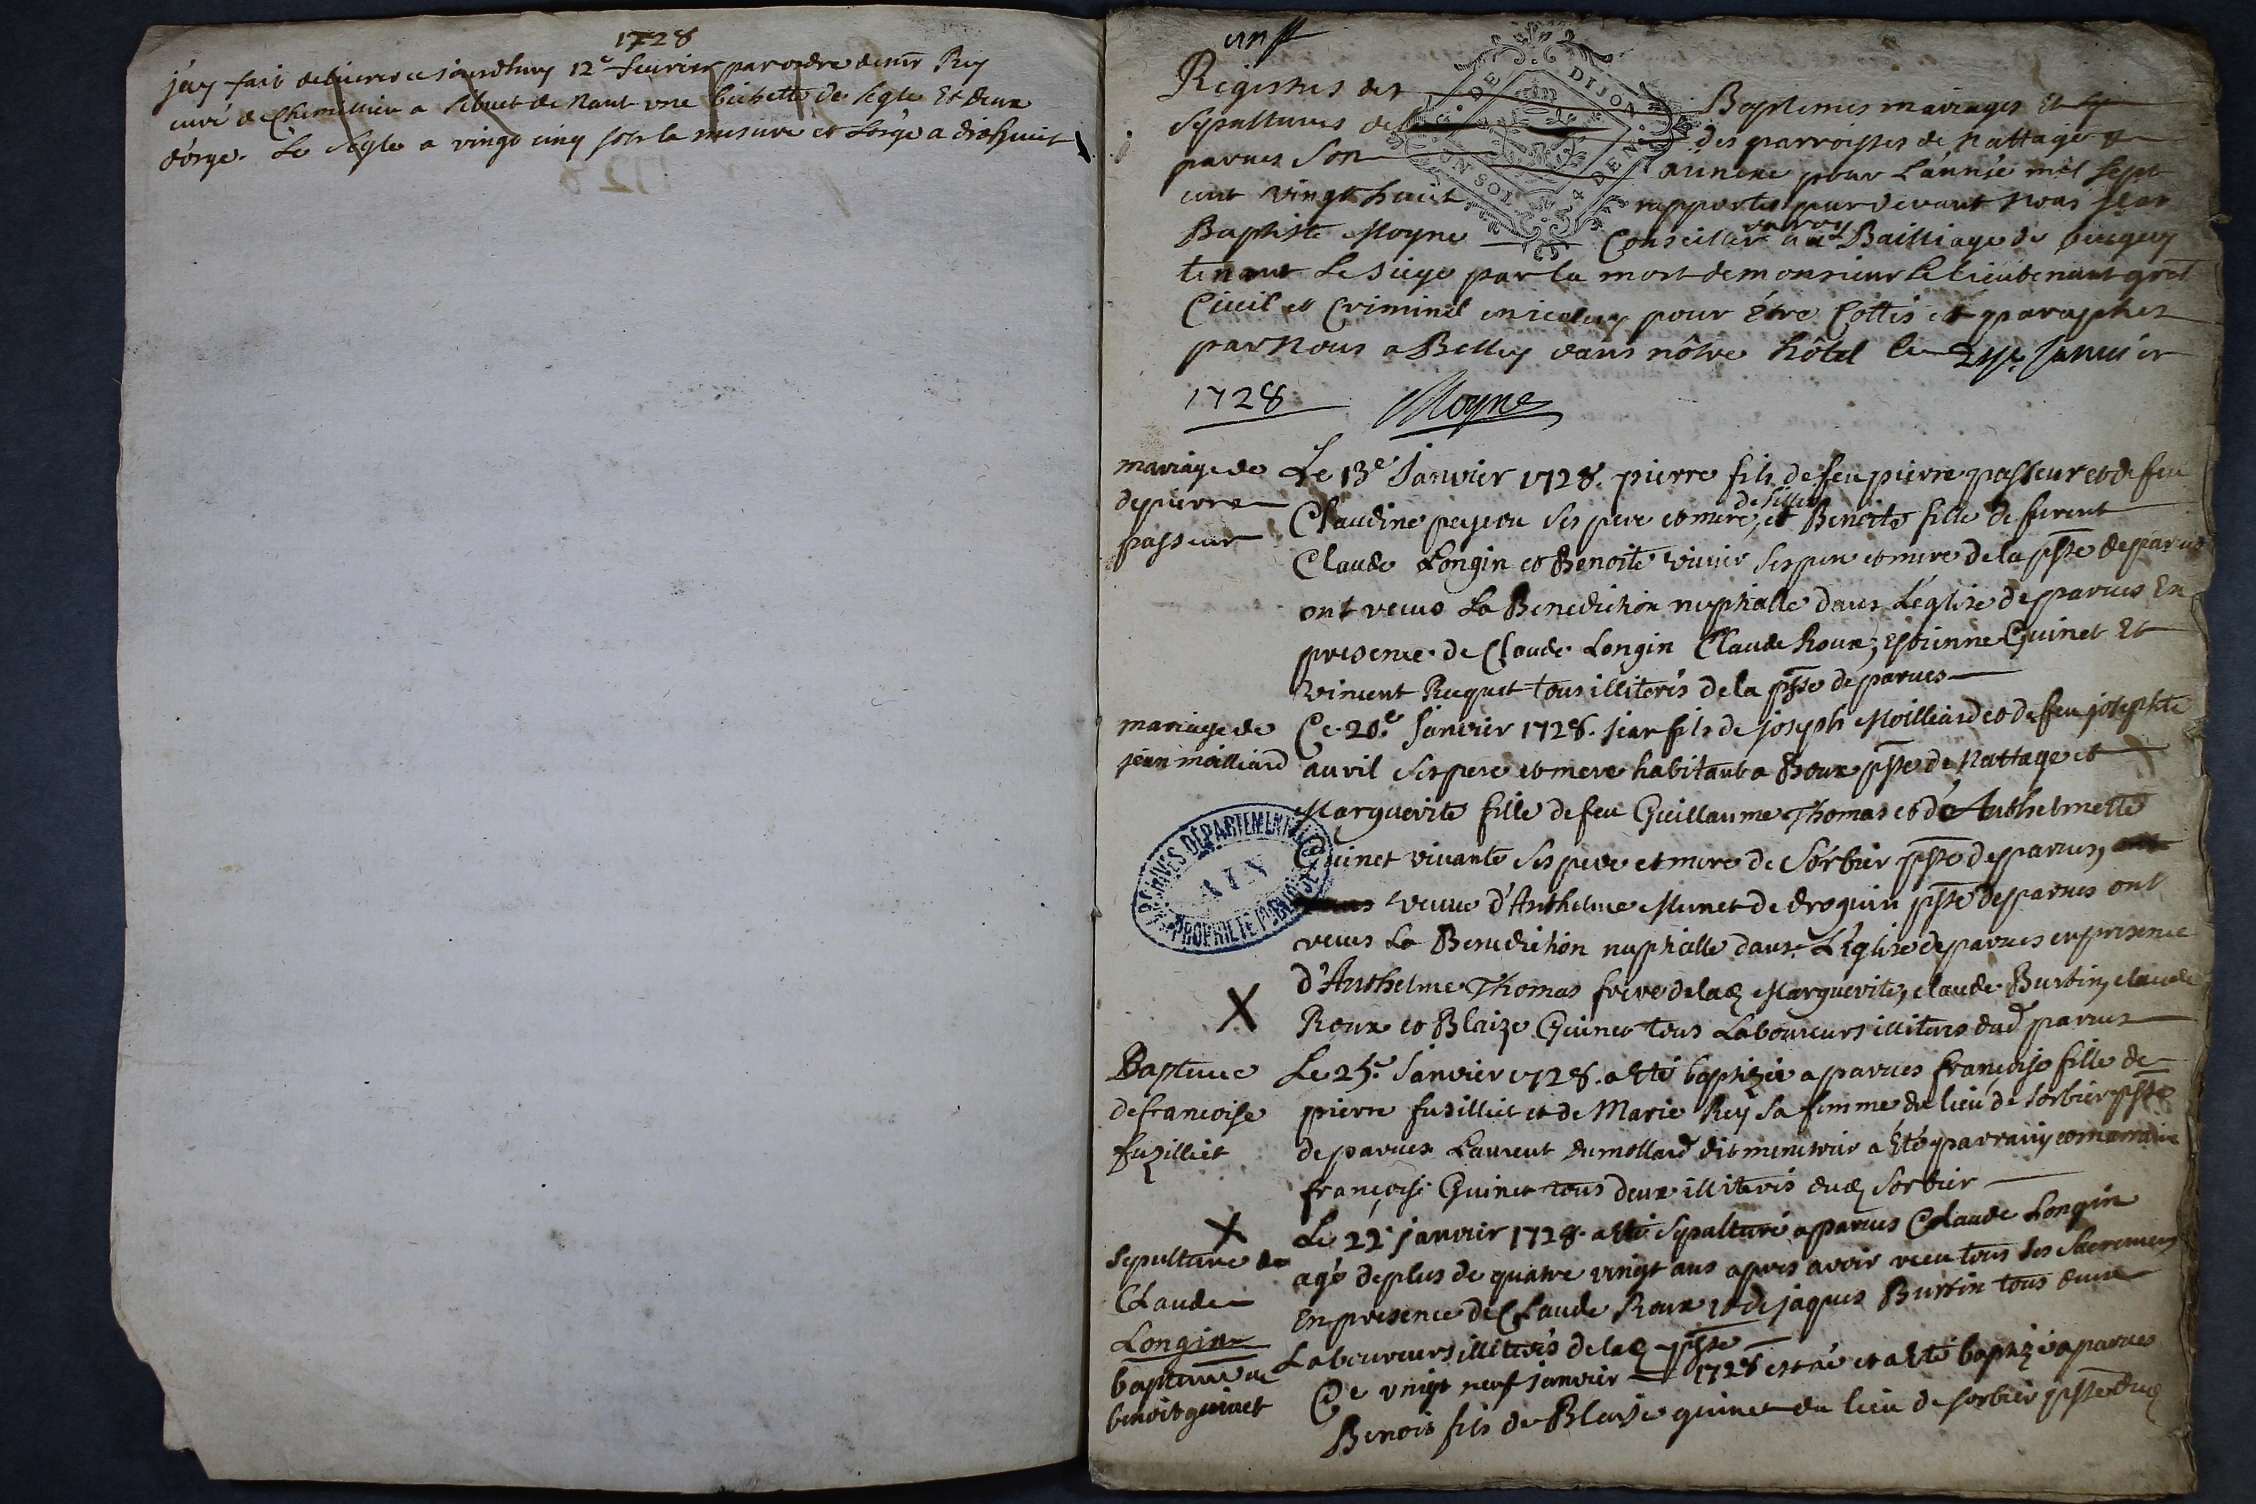 1728
j'ay fait delivrer ce jourdhuy 12e fevrier par ordre de mr Rey
curé de Chemillieu a de Nant une bichette de segle Et deux
d'orge. Le segle a vingt cinq sols la mesure et Lorge a dixhuit
un
Registres des Baptemes mariages Et
sepultures des parroisses de Nattage
parves Son annexe pour L'année mil sept
cent vingt huit rapportés par devant Nous Jean
Baptiste Moyne Conseiller du roy au Bailliage de beugey
tenant Le siege par la mort de monsieur le lieutenant gnal
Civil et Criminel en iceluy pour étre Cottés et paraphés
par Nous a Belley dans nôtre hôtel le Janvier
1728 Moyne
mariage de
de pierre
passeur
Le 13e Janvier 1728. pierre fils de feu pierre passeur et de feu
Claudine ses pere et mere, et Benoite fille de furent
Claude Longin et Benoite vivier ses pere et mere de la psse de parves
ont reçus La Benediction nuptialle dans L'église de parves En
presence de Claude Longin Claude Roux, Estienne Guinet Et
vincent Recquet tous illiterés de la psse de parves
mariage de
jean moilliard
Ce 20e Janvier 1728. jean fils de joseph Moilliard et de feu josephte
avril ses pere et mere habitant a psse de Nattage et
Marguerite fille de feu Guillaume Thomas et d'Anthelmette
Guinet vivante ses pere et mere de Sorbier psse de parves,
veuve d'Anthelme Munet de psse de parves ont
reçus La Benediction nuptialle dans L'église de parves en presence
d'Anthelme Thomas frere de lad Marguerite, claude Burtin, claude
Roux et Blaize Guinet tous Laboureurs illiterés dud parves
X
Bapteme
de francoise
fuzilliet
Le 25e Janvier 1728. a Eté baptizée a parves françoise fille de
pierre fuzilliet et de Marie Rey sa femme du lieu de sorbier psse
de parves Laurent dumollard dit a Eté parrain, et marraine
françoise Guinet tous deux illiterés dud Sorbier
X
sepulture de
Claude
Longin
Le 22e janvier 1728. a Eté sepulturé a parves Claude Longin
agé de plus de quatre vingt ans apres avoir reçeu tous les sacremens
En presence de Claude Roux et de jaques Burtin tous deux
Laboureurs illiterés de lad psse
bapteme de
benoit guinet
Ce vingt neuf janvier 1728 est né et a Eté baptizé a parves
Benoit fils de Blaise guinet du lieu de sorbier psse dud
ARCHIVES DEPARTEMENTALES
AIN
PROPRIETE PUBLIQUE